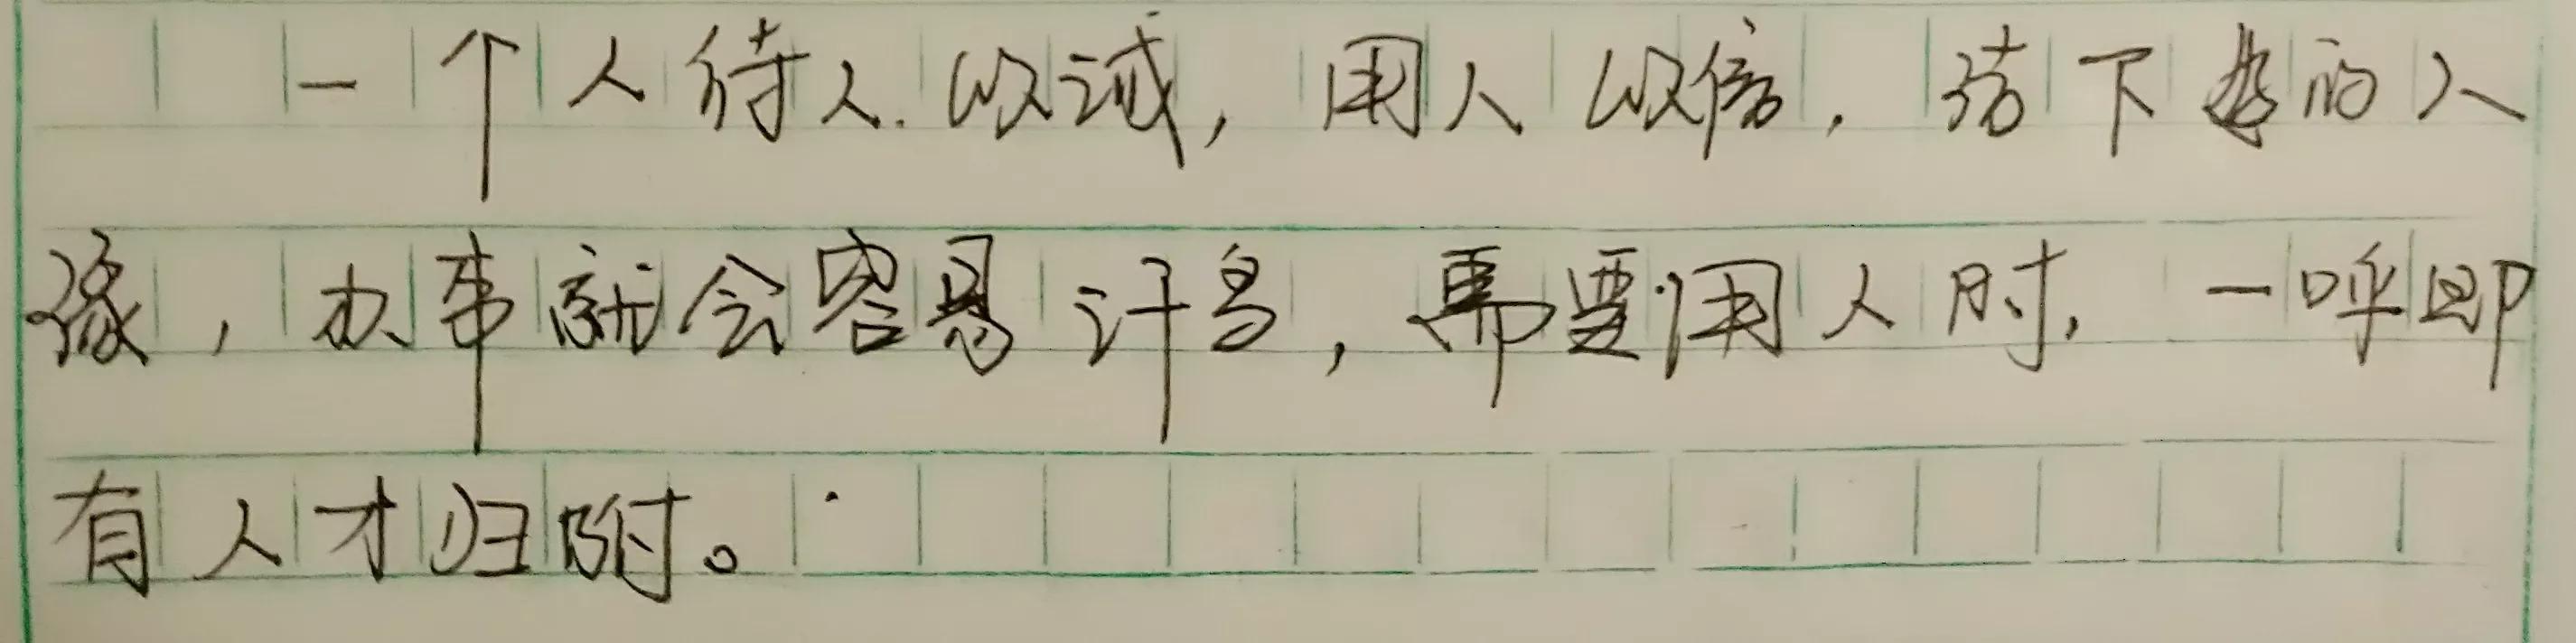 一个人待人以诚，用人以信，结下善的人
缘，办事就会容易许多，需要用人时，一呼即
有人才归附。